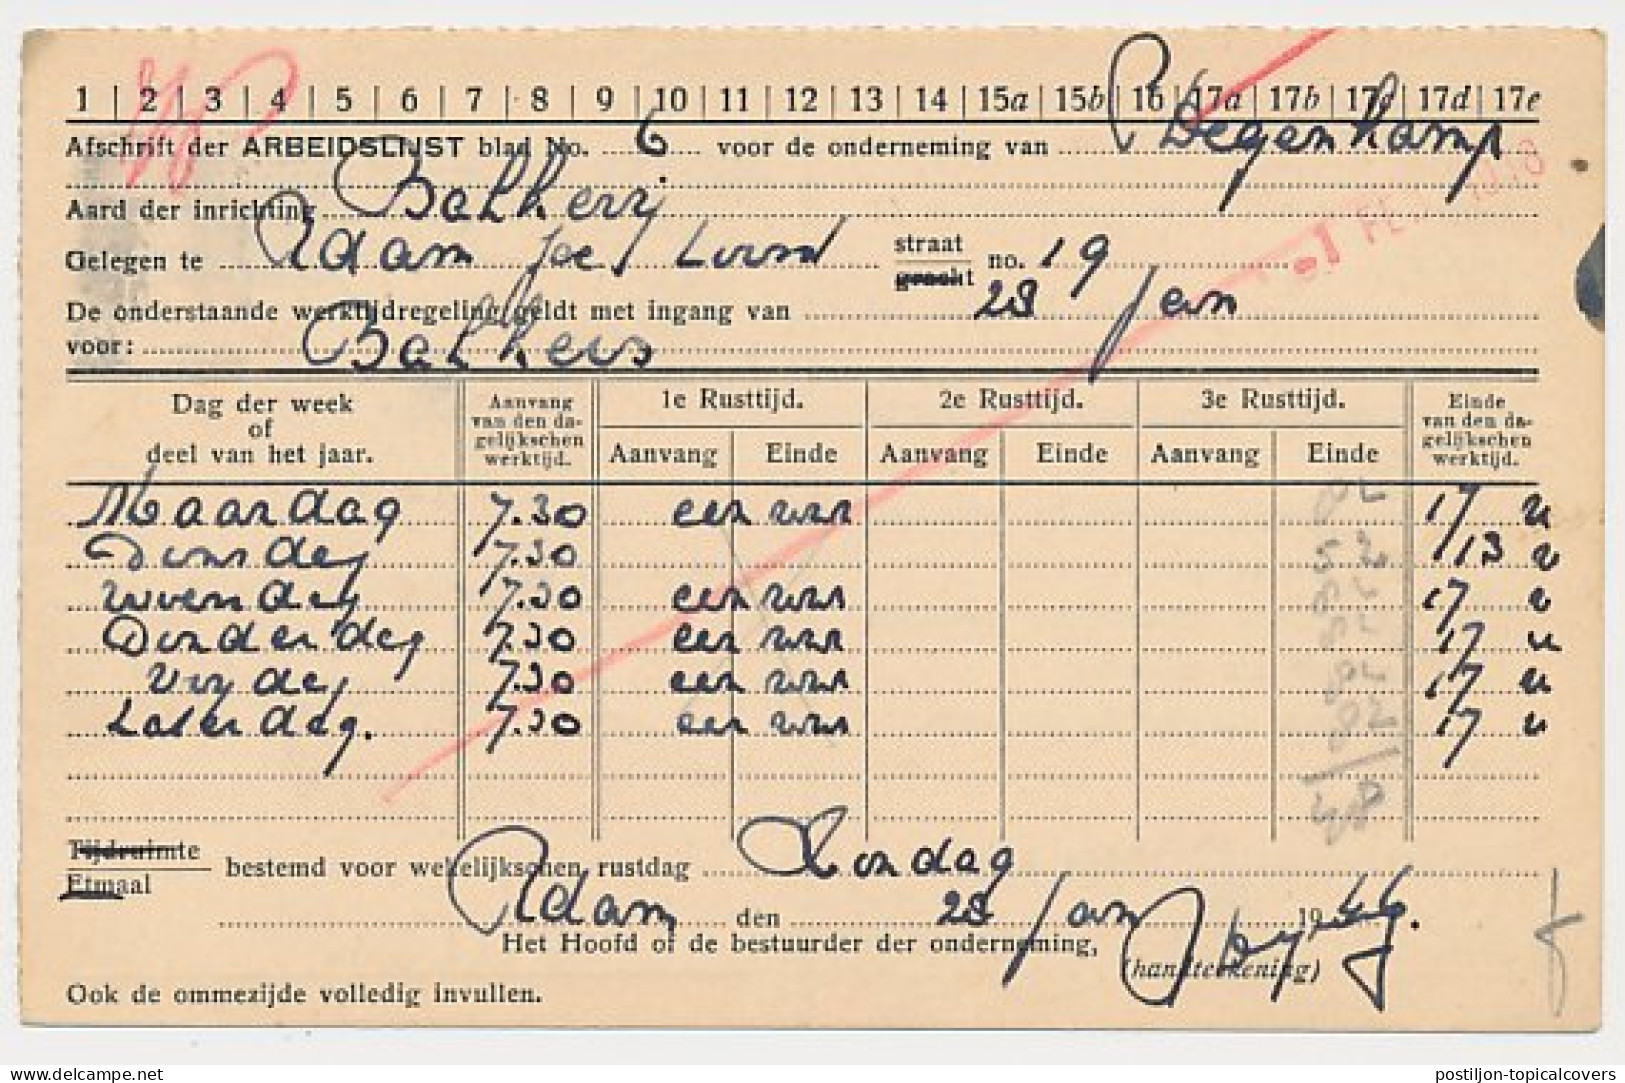 1 | 2 | 3 | 4 | 5 | 6 | 7 | 8 | 9 | 10 | 11 | 12 | 13 | 14 | 15a | 15b | 16 | 17a | 17b | 17c | 17d | 17e
Afschrift der ARBEIDSLIJST blad No. 6 voor de onderneming van Degenkamp
Aard der inrichting Bakkerij
Gelegen te Adam straat gracht no. 19
De onderstaande werktijdregeling geldt met ingang van 28 Jan
voor: Bakkers
Dag der week of deel van het jaar. Aanvang van den dagelijkschen werktijd. 1e Rusttijd. 2e Rusttijd. 3e Rusttijd. Einde van den dagelijkschen werktijd.
Aanvang Einde Aanvang Einde Aanvang Einde
Maandag 7.30 een uur 17 u
Dinsdag 7.30 13 u
Woensdag 7.30 een uur 17 u
Donderdag 7.30 een uur 17 u
Vrijdag 7.30 een uur 17 u
Zaterdag. 7.30 een uur 17 u
48
Tijdruimte
Etmaal bestemd voor wekelijkschen rustdag Zondag
Adam den 28 Jan 1946.
Het Hoofd of de bestuurder der onderneming,
(handteekening)
Ook de ommezijde volledig invullen.
delcampe.net
postiljon-topicalcovers